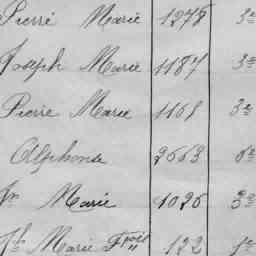 Pierre Marie 1278 3e
Joseph Marie 1187 3e
Pierre Marie 1168 3e
Alphonse 2663 6e
Jn Marie 1026 3e
Jh Marie Fçois 122 1e